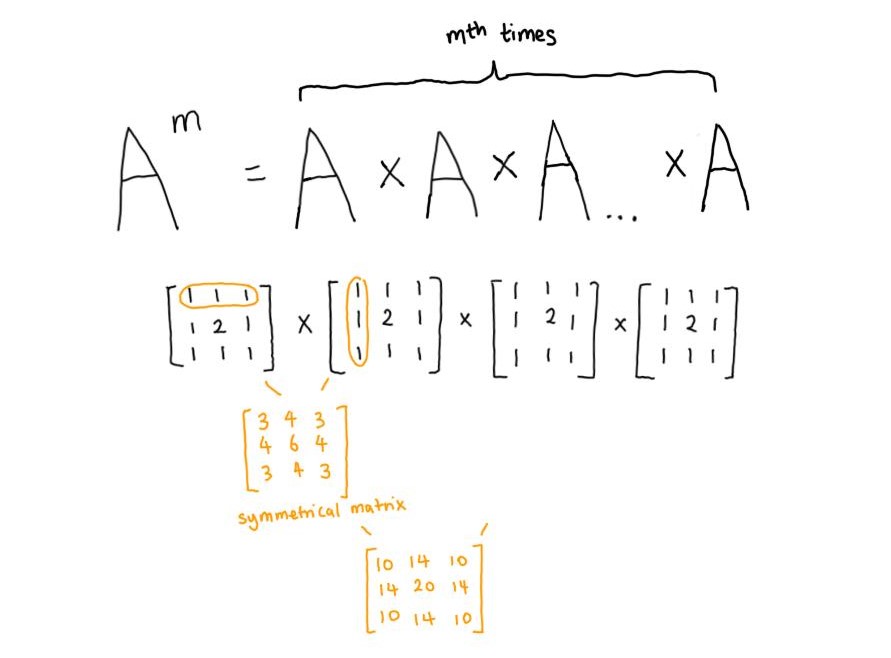 mth times
A^m = A × A × A... × A
[1 1 1] × [1 1 1] × [1 1 1] × [1 1 1]
[1 2 1] [1 2 1] [1 2 1] [1 2 1]
[1 1 1] [1 1 1] [1 1 1] [1 1 1]
3 4 3
4 6 4
3 4 3
symmetrical matrix
10 14 10
14 20 14
10 14 10